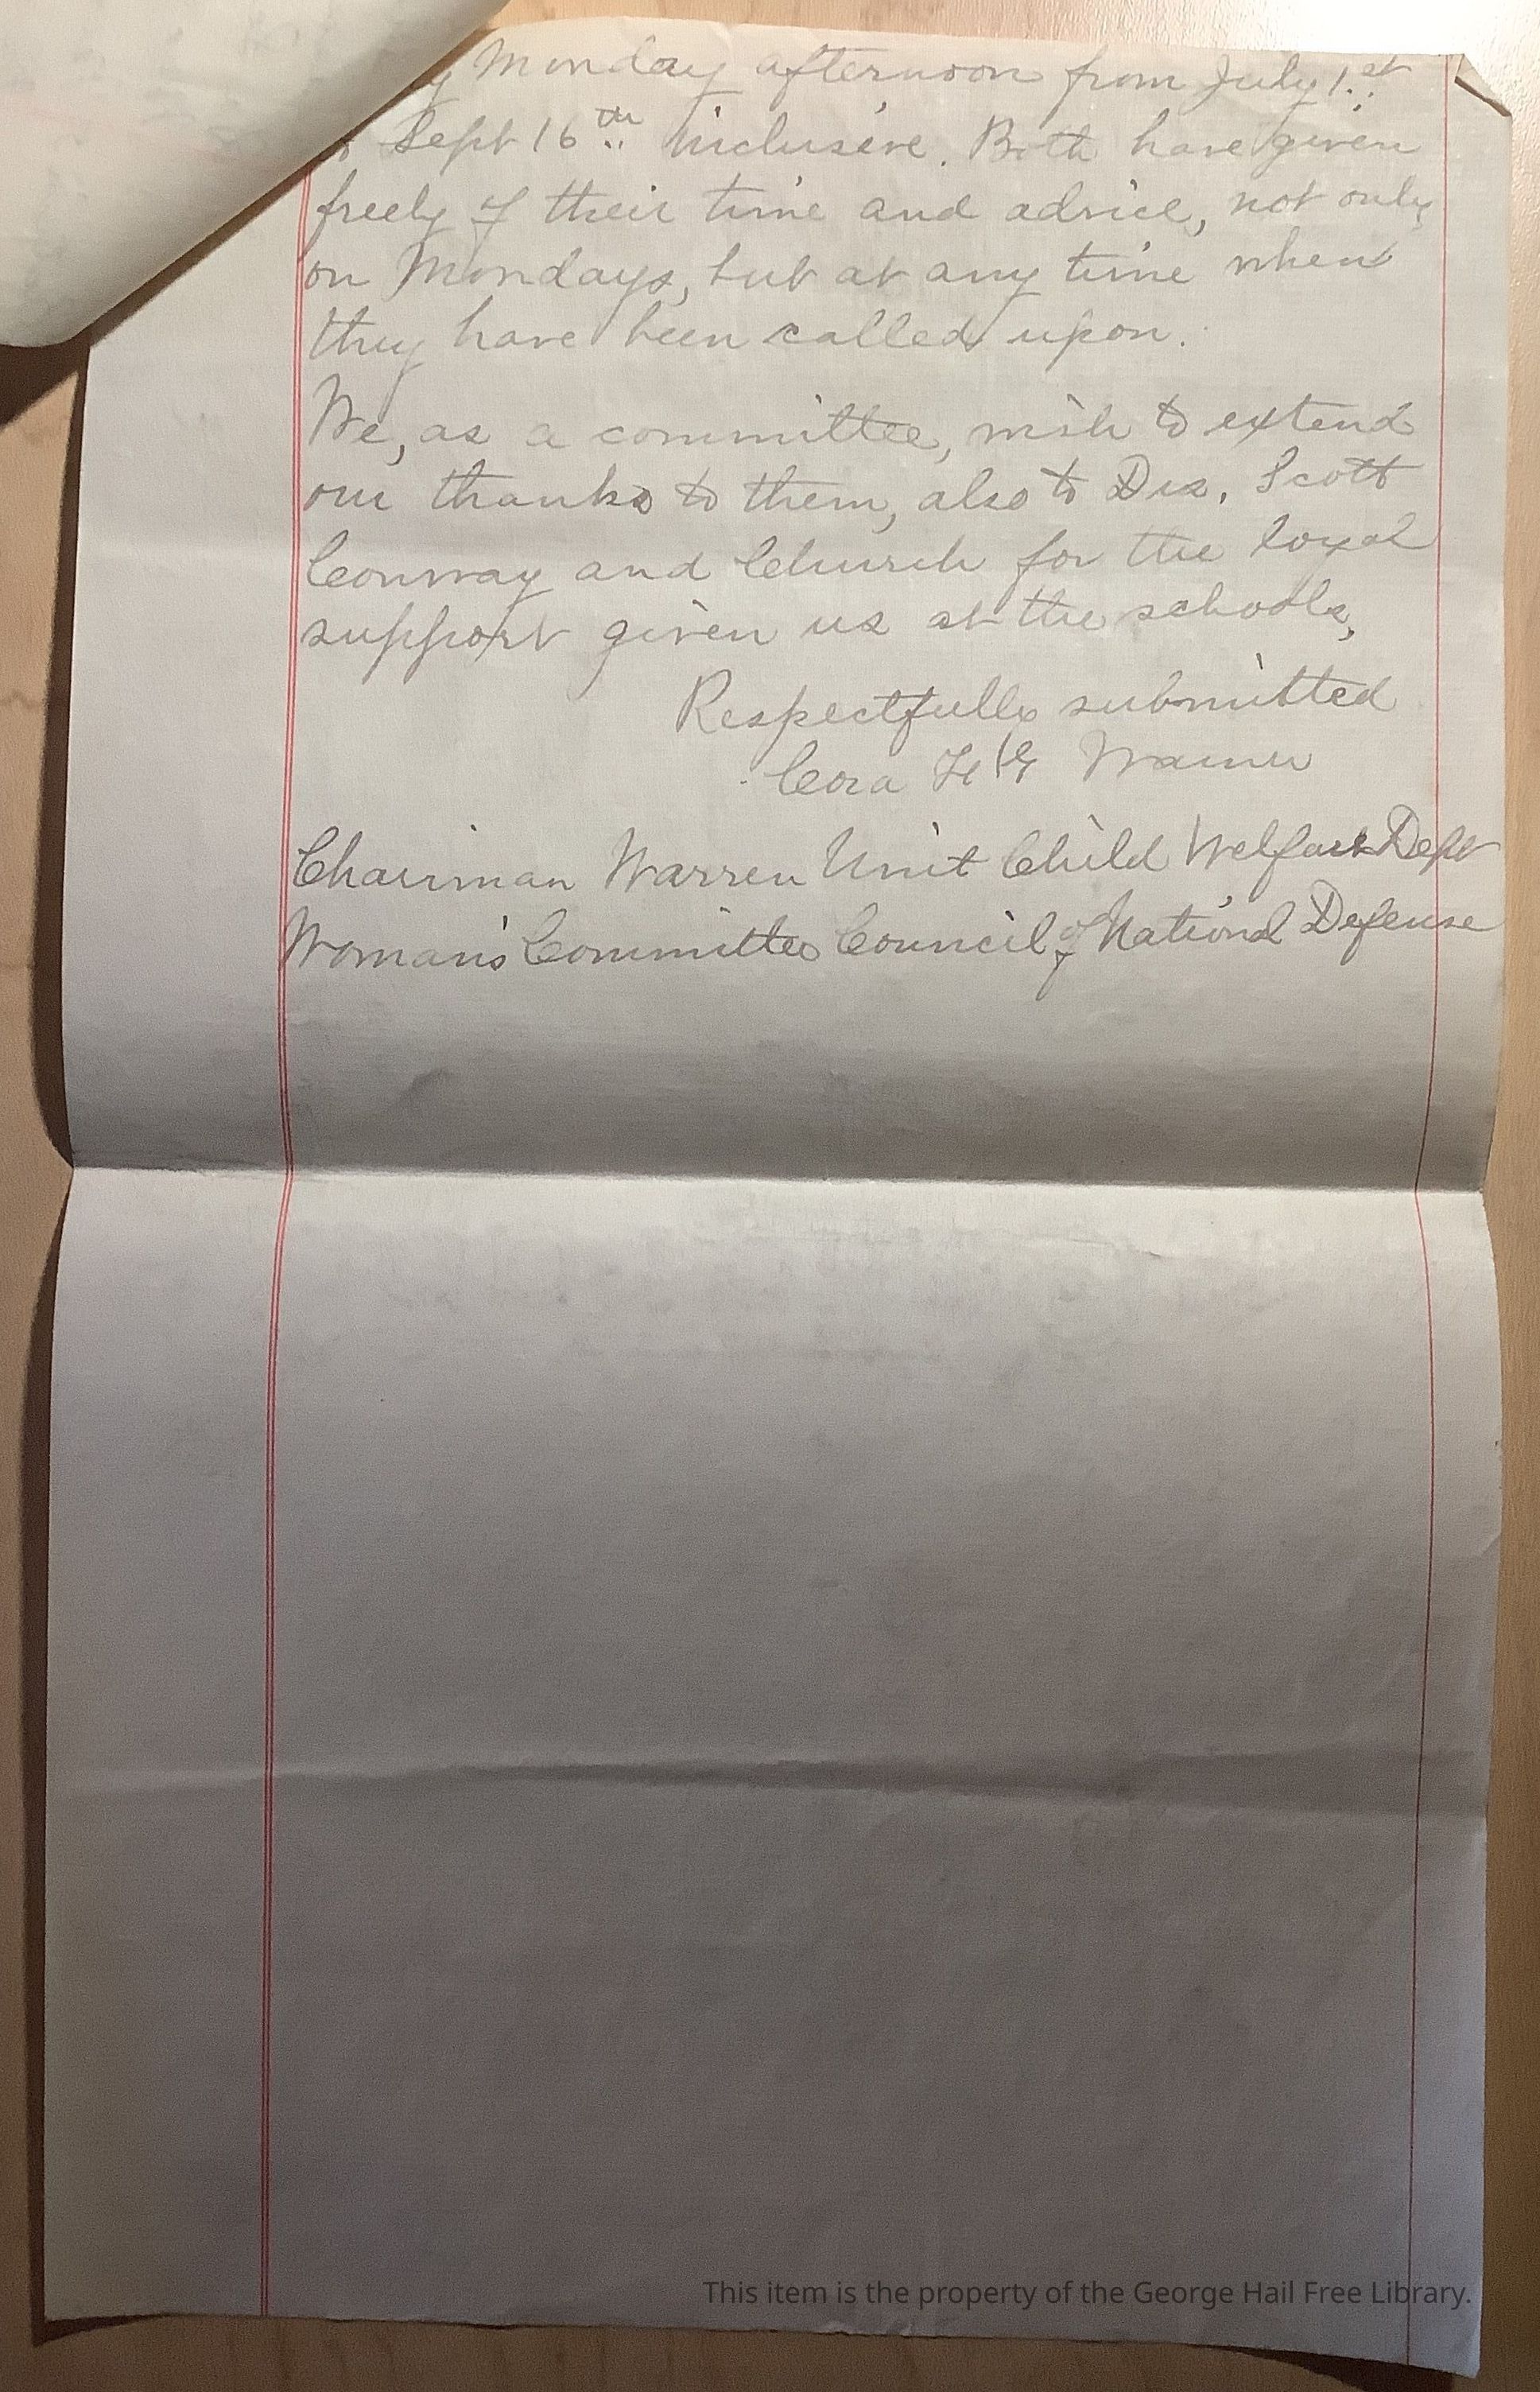 y Monday afternoon from July 1.st
Sept 16th inclusive. Both have given
freely of their time and advice, not only
on Mondays, but at any time when
they have been called upon.
We, as a committee, wish to extend
our thanks to them, also to Drs. Scott
Conway and Church for the loyal
support given us at the schools.
Respectfully submitted
Cora H G
Chairman Warren Unit Child Welfare Dept
Woman's Committee Council of National Defense
This item is the property of the George Hail Free Library.